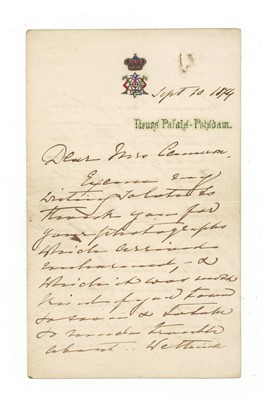 Sept 10 1874
Neues Palais-Potsdam.
Dear Mrs Cameron,
Excuse my
writing so late to
thank you for
your photographs
which arrived
unharmed, - &
which it was most
kind of you
to & take
so much trouble
about. We